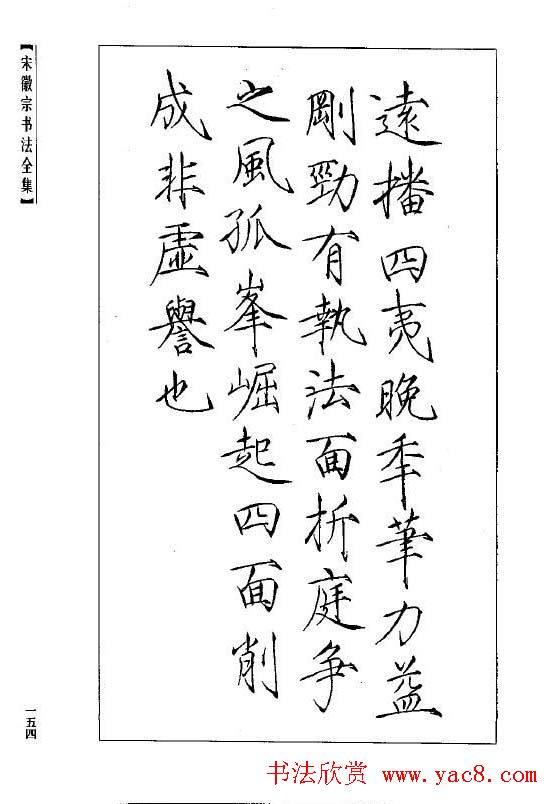 【宋徽宗书法全集】
遠播四夷晚秊筆力益
剛勁有執法面折庭爭
之風孤峯崛起四面削
成非虛譽也
一五四
书法欣赏 www.yac8.com